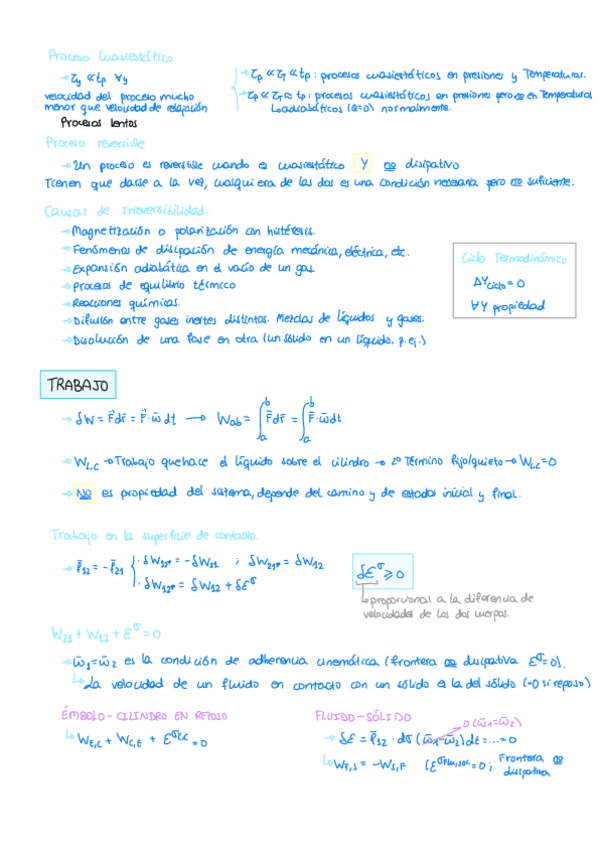 Proceso Cuasiestático
→ τy ≪ tp ∀y
velocidad del proceso mucho
menor que velocidad de relajación
Procesos lentos
→ τp ≪ τT ≪ tp : procesos cuasiestáticos en presiones y Temperaturas.
→ τp ≪ τT ≈ tp : procesos cuasiestáticos en presiones pero no en Temperaturas
↳ adiabáticos (Q=0) normalmente.
Proceso reversible
→ Un proceso es reversible cuando es cuasiestático Y no disipativo
Tienen que darse a la vez, cualquiera de las dos es una condición necesaria pero no suficiente.
Causas de Irreversibilidad.
→ Magnetización o polarización con histéresis.
→ Fenómenos de disipación de energía mecánica, eléctrica, etc.
→ Expansión adiabática en el vacío de un gas.
→ Procesos de equilibrio térmico
→ Reacciones químicas.
→ Difusión entre gases inertes distintos. Mezclas de líquidos y gases.
→ Disolución de una fase en otra (un sólido en un líquido, p.ej.)
Ciclo Termodinámico
ΔYciclo = 0
∀Y propiedad
TRABAJO
→ δW = F̄dr̄ = F̄·w̄dt → Wab = ∫ₐᵇ F̄dr̄ = ∫ₐᵇ F̄·w̄dt
→ WL,C → Trabajo que hace el líquido sobre el cilindro → 2º Término fijo/quieto → WL,C = 0
→ No es propiedad del sistema, depende del camino y de estados inicial y final.
Trabajo en la superficie de contacto
→ f̄12 = -f̄21 { · δW12* = -δW21 ; δW21* = δW12
· δW12* = δW12 + δEσ
δEσ ⩾ 0
↳ proporcional a la diferencia de
velocidades de los dos cuerpos.
W21 + W12 + Eσ = 0
→ w̄1 = w̄2 es la condición de adherencia cinemática (frontera no disipativa Eσ=0).
↳ La velocidad de un fluido en contacto con un sólido es la del sólido (=0 si reposo)
ÉMBOLO-CILINDRO EN REPOSO
↳ WE,C + WC,E + EσE,C = 0
FLUIDO-SÓLIDO
0 (w̄1=w̄2)
→ δE = f̄12 · dσ (w̄1-w̄2)dt = ... = 0
↳ WF,S = -WS,F (EσFlu,Sól = 0; Frontera no
disipativa